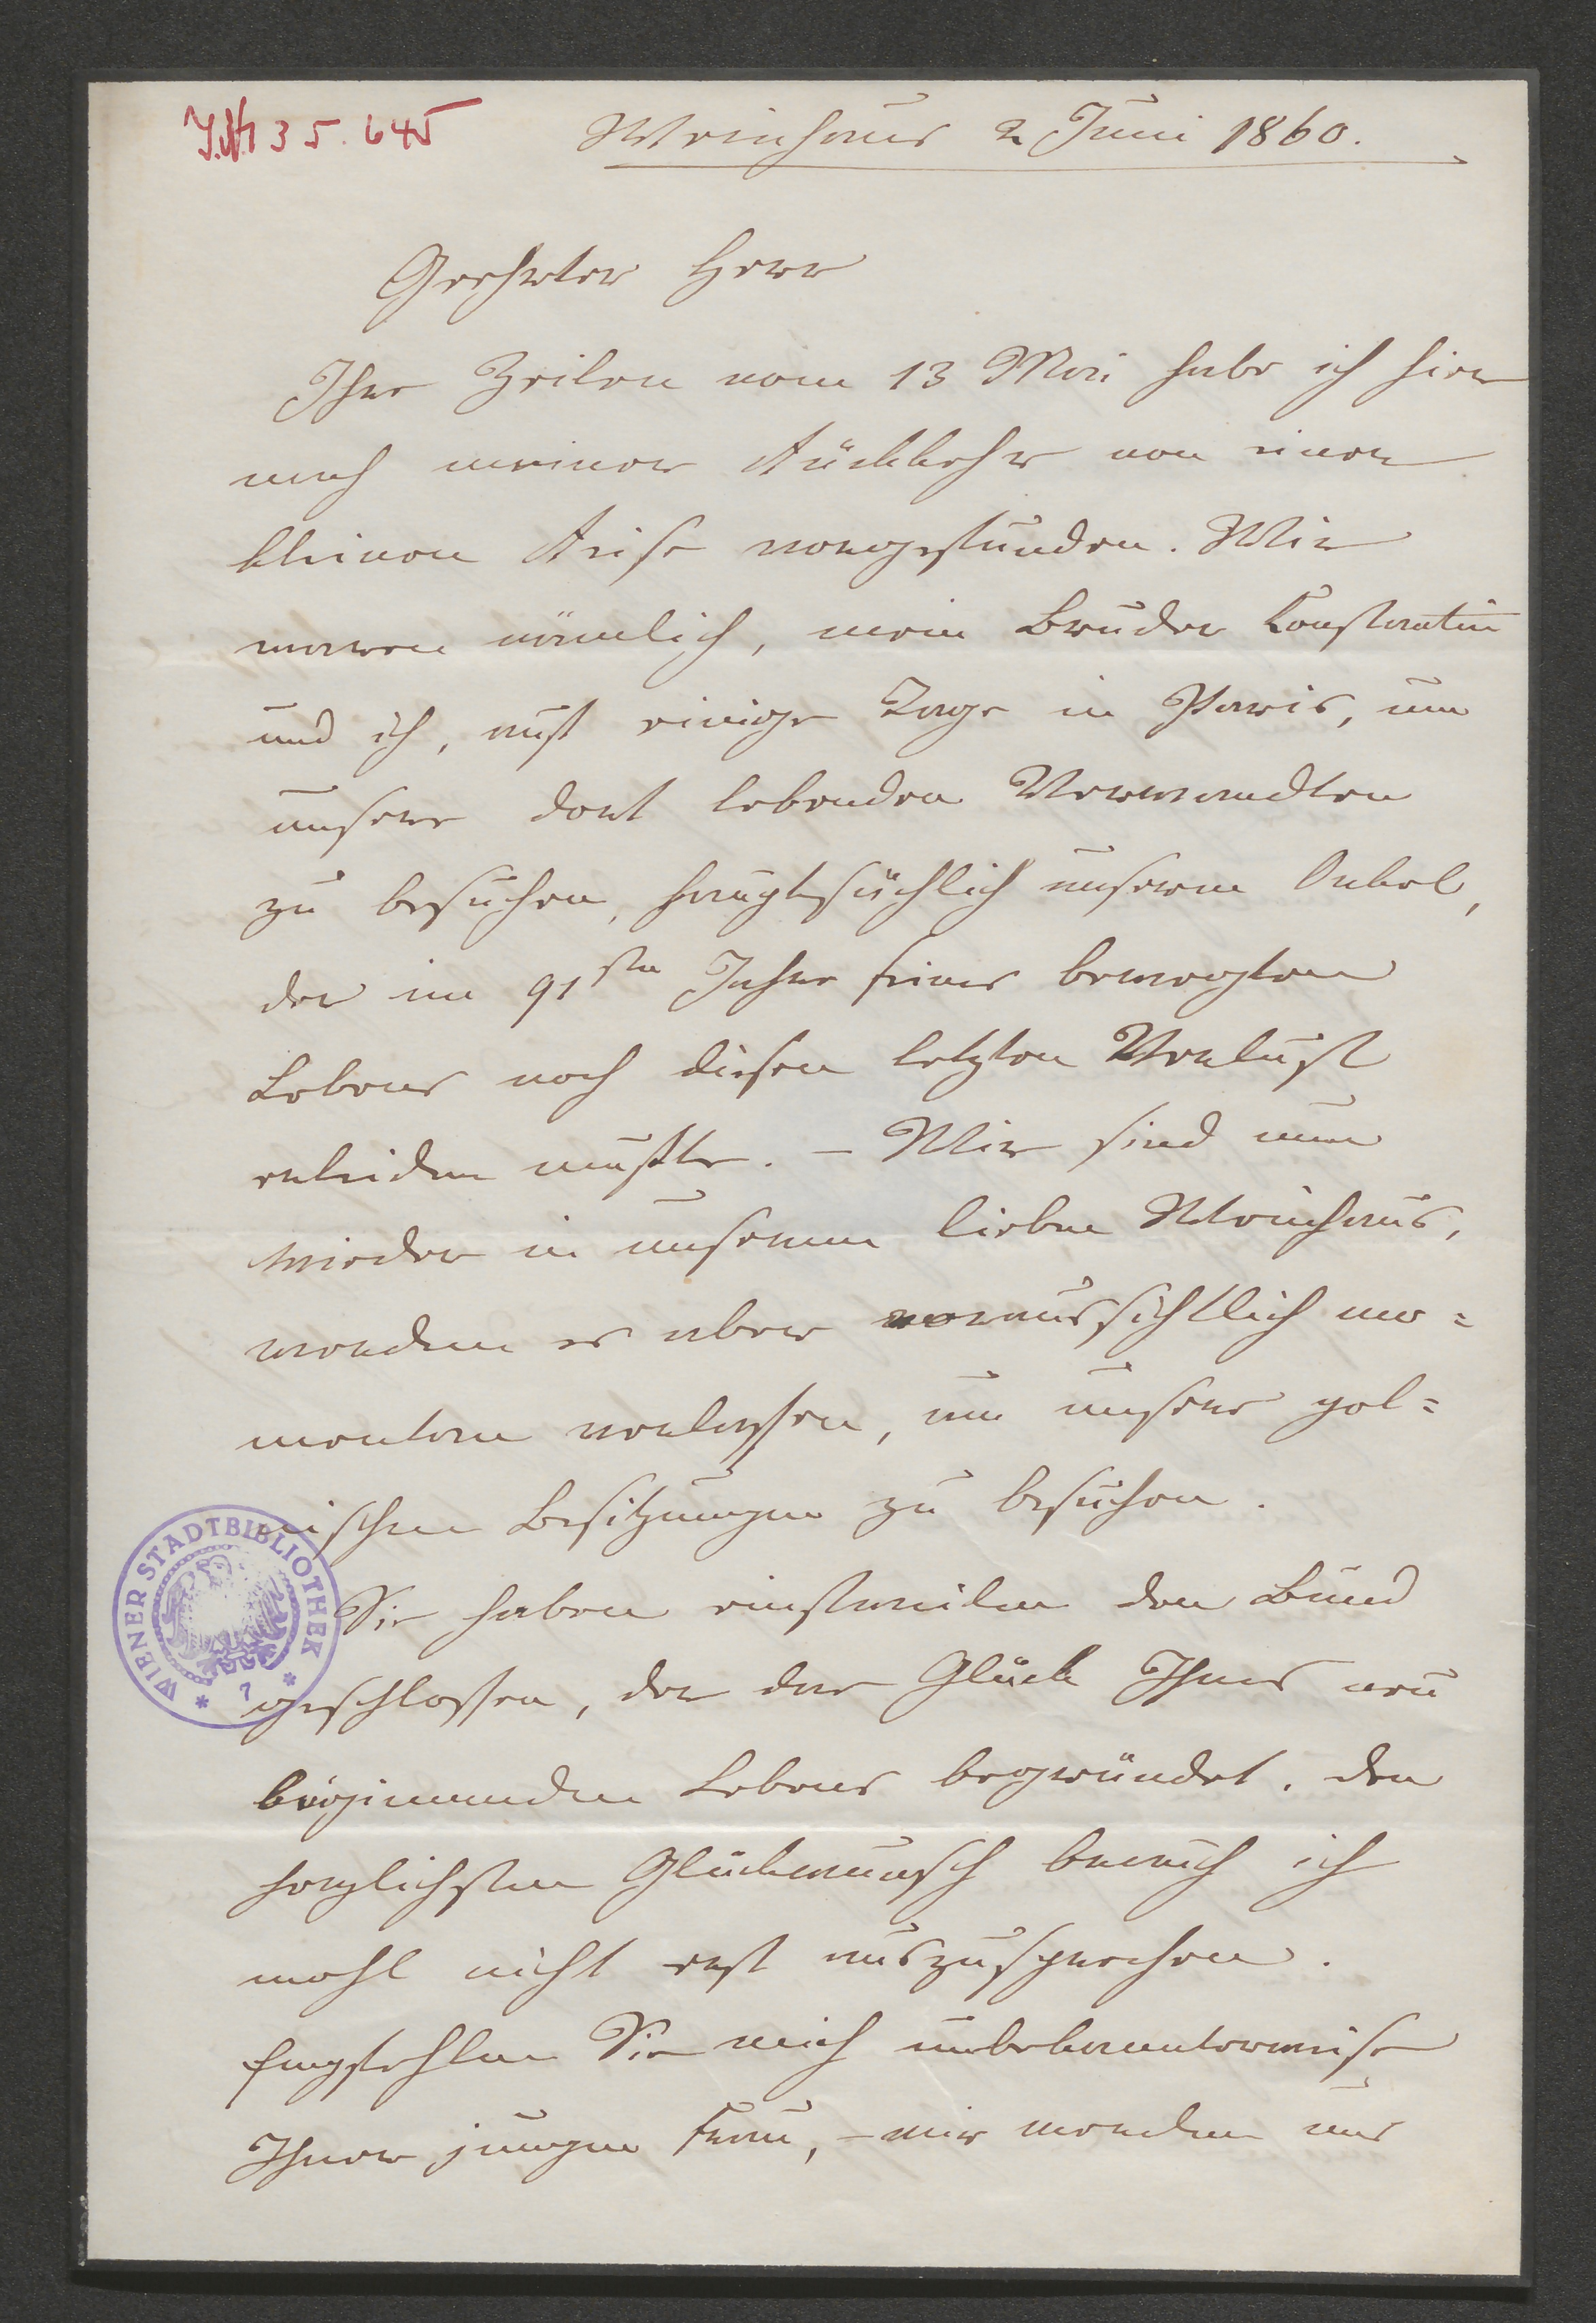 J.N. 35.645
Weinhaus 2 Juni 1860.
Geehrter Herr
Ihre Zeilen vom 13 Mai habe ich hier
nach meiner Rückkehr von einer
kleinen Reise vorgefunden. Wir
waren nämlich, mein Bruder Constantin
und ich, auf einige Tage in Paris, um
unsere dort lebenden Verwandten
zu besuchen, hauptsächlich unseren Onkel,
der im 91sten Jahre seines bewegten
Lebens noch diesen letzten Verlust
erleiden mußte. – Wir sind nun
wieder in unserem lieben Weinhaus,
werden es aber voraussichtlich mo=
mentan verlassen, um unsere pol=
nischen Besitzungen zu besuchen.
Sie haben einstweilen den Bund
geschlossen, der das Glück Ihres neu
beginnenden Lebens begründet. Den
herzlichsten Glückwunsch brauch ich
wohl nicht erst auszusprechen.
Empfehlen Sie mich unbekannterweise
Ihrer jungen Frau, – wir werden uns
WIENER STADTBIBLIOTHEK
* 7 *